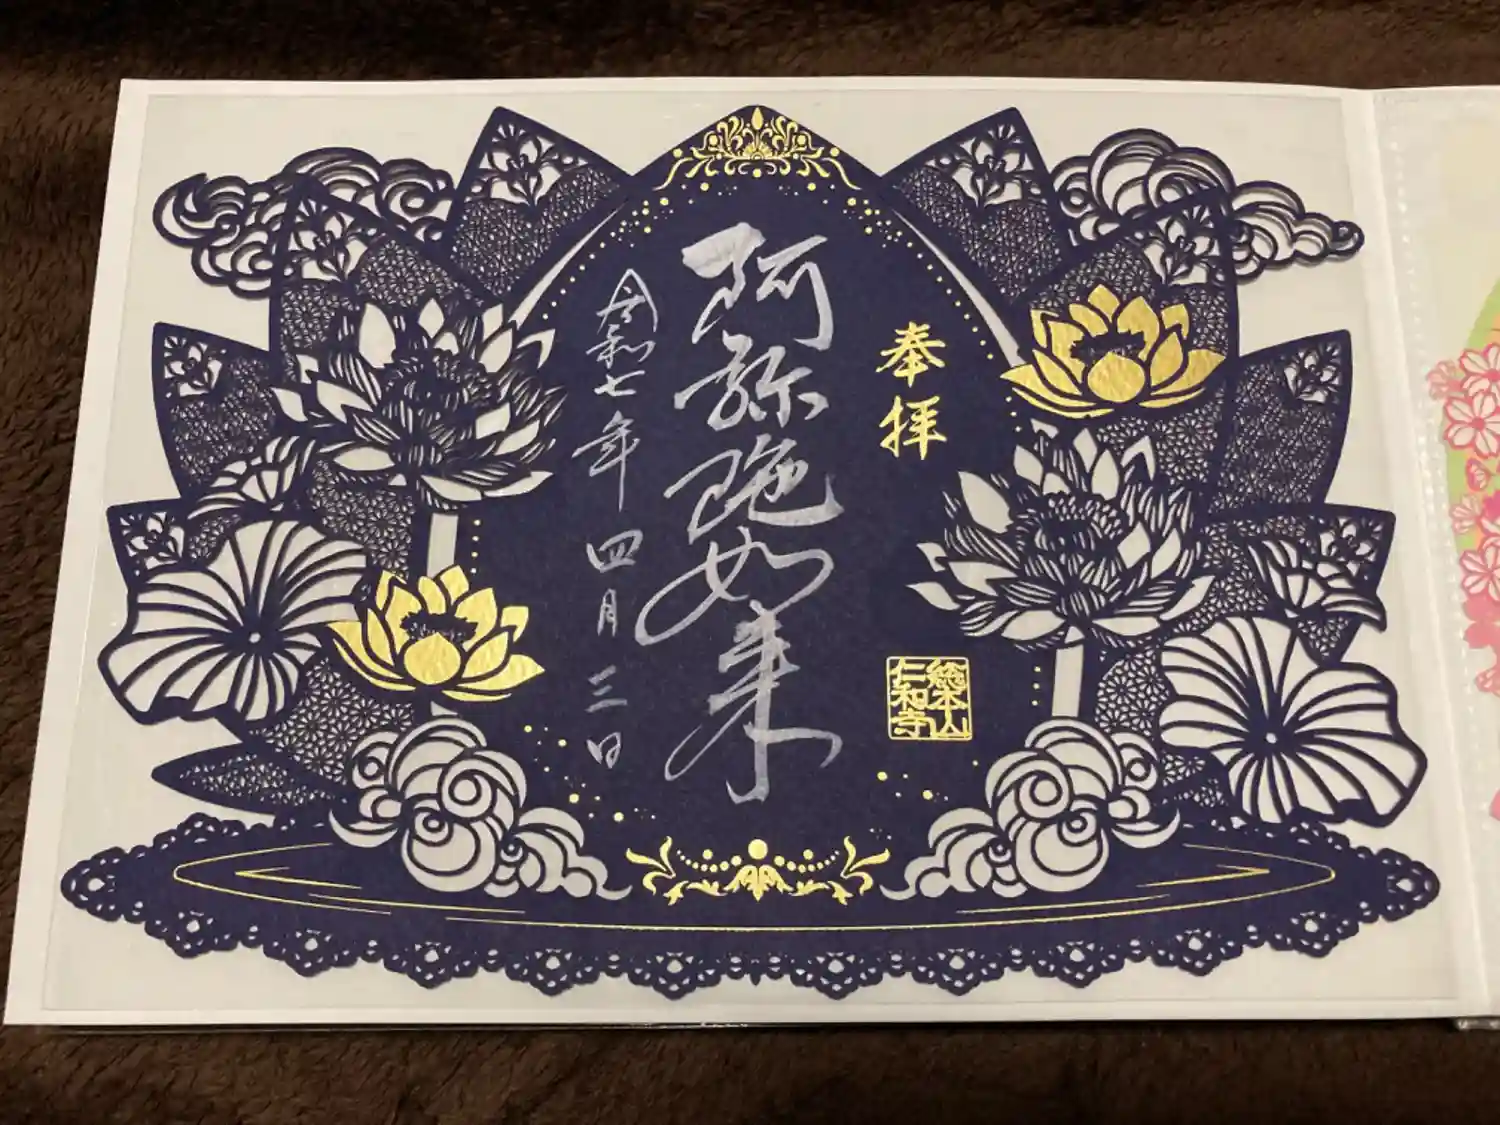 奉拝
阿弥陀如来
令和七年四月三日
総本山
仁和寺